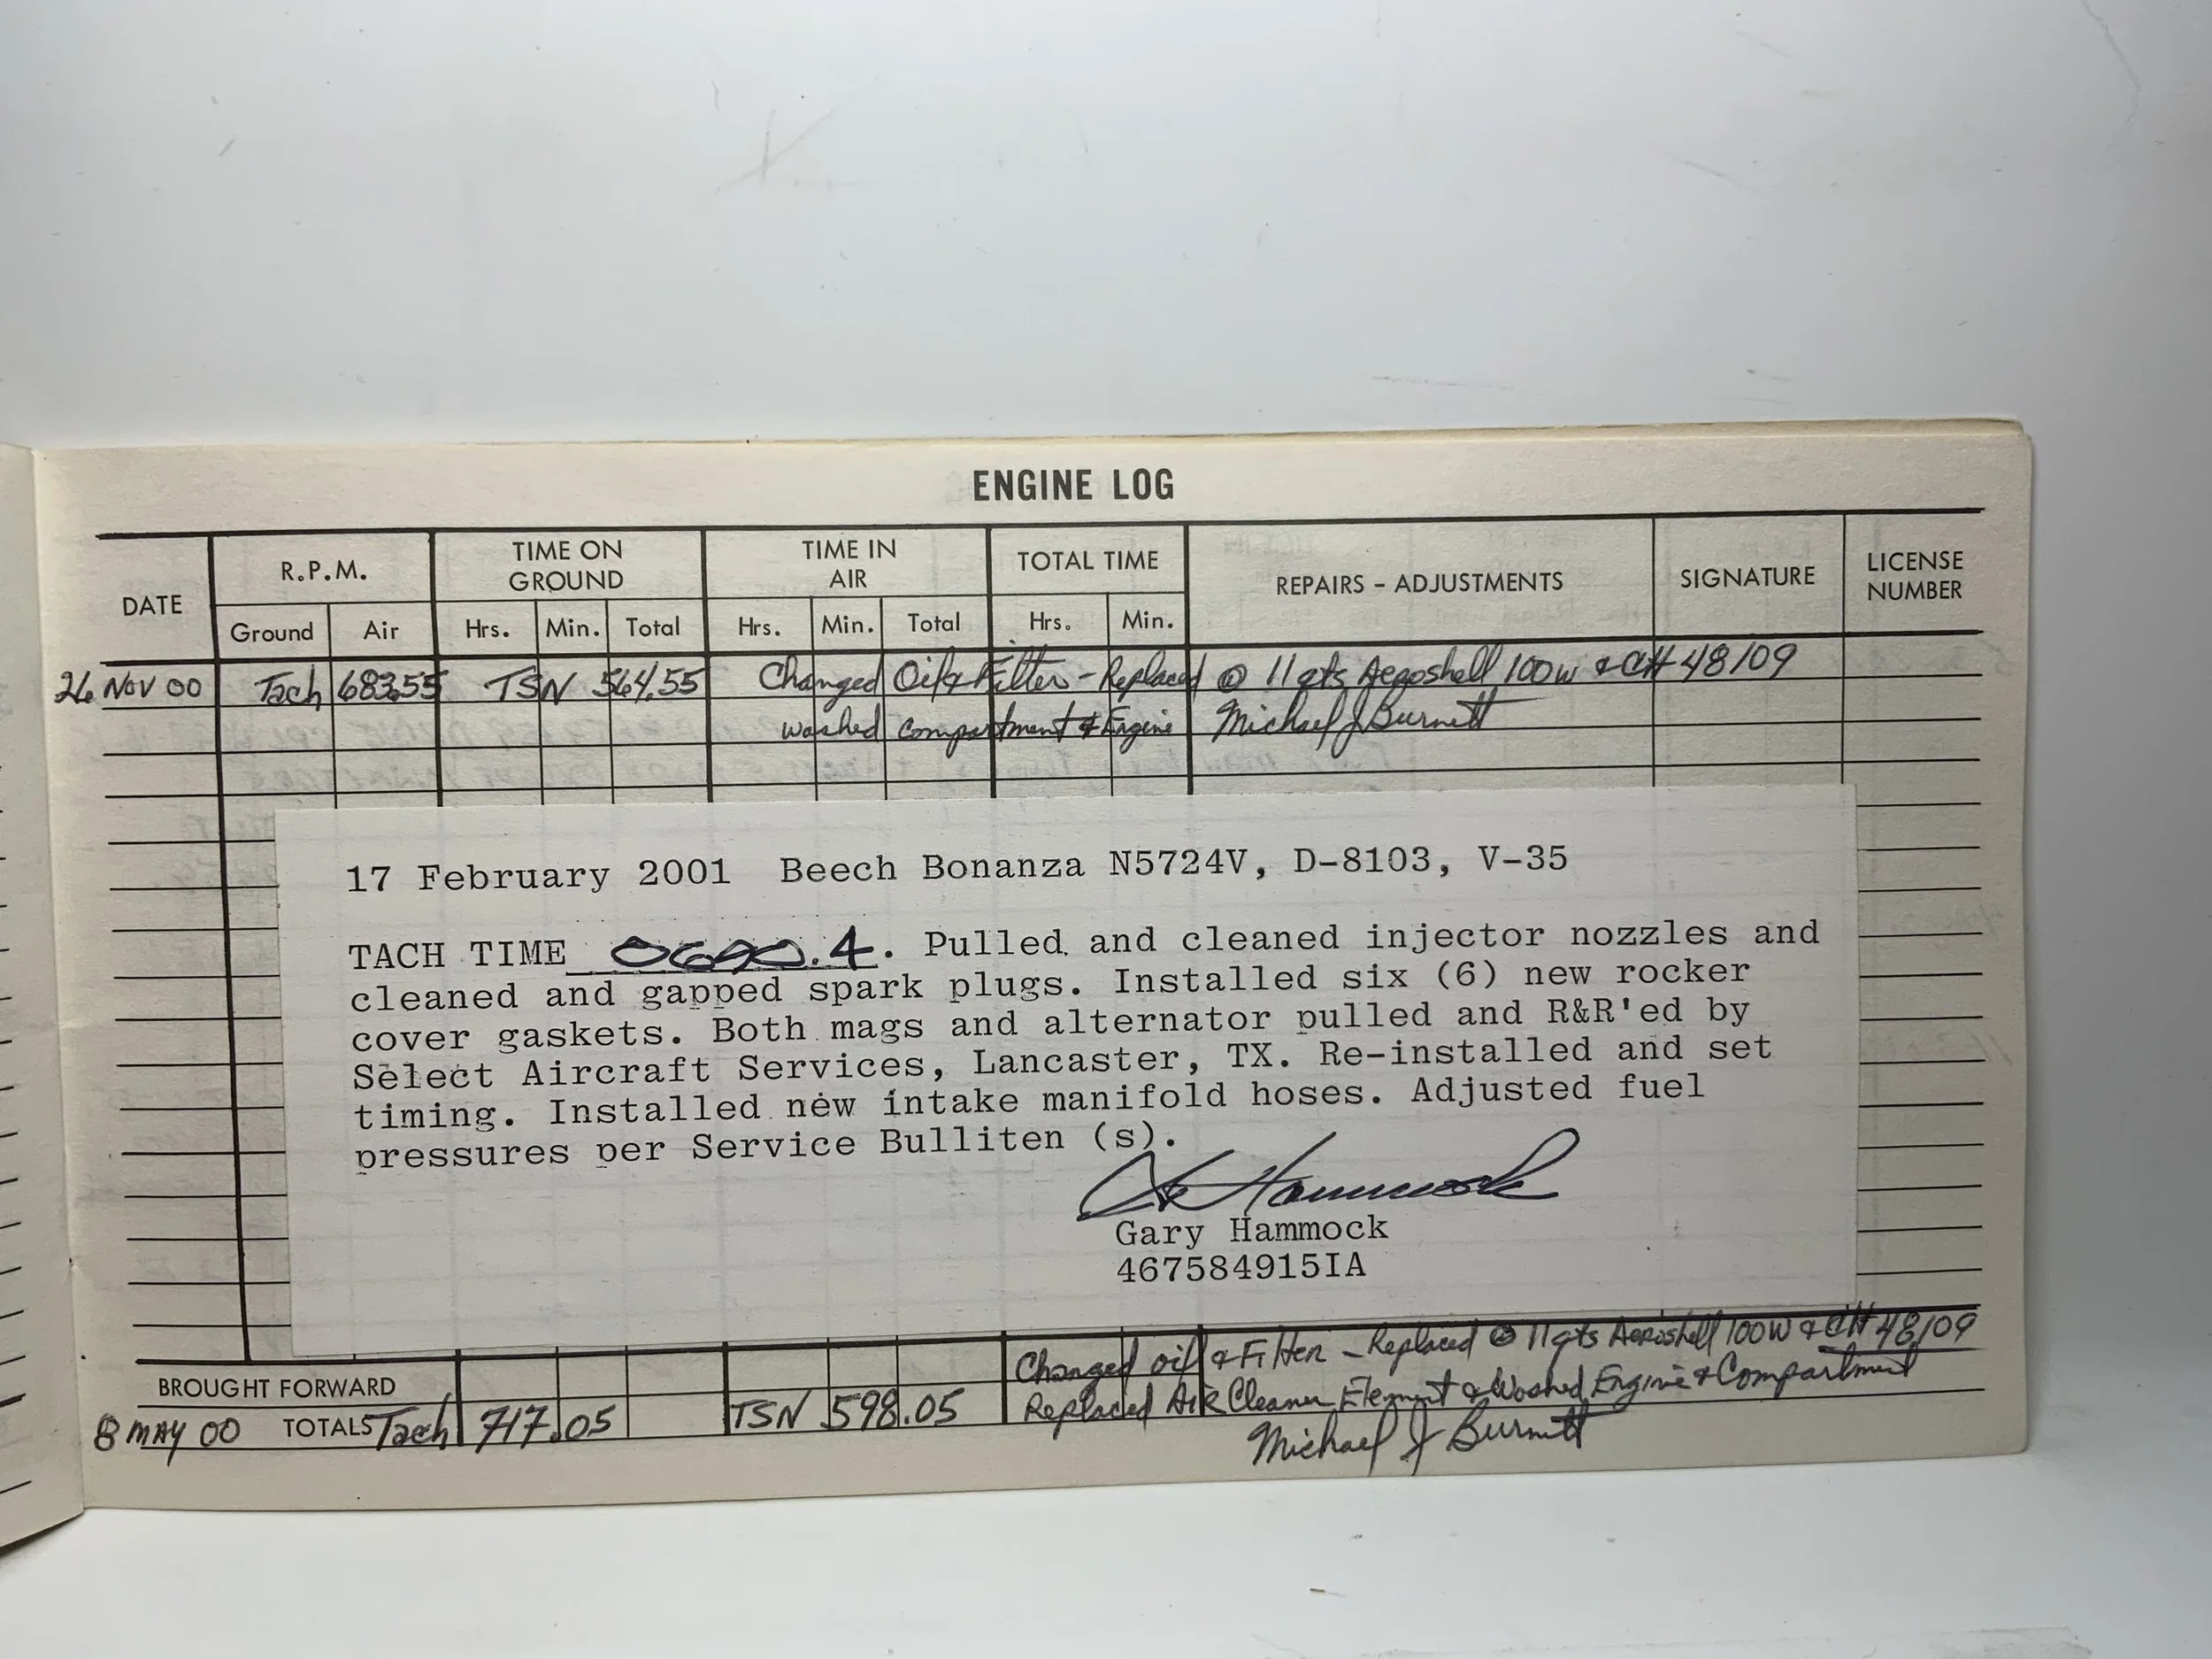 ENGINE LOG
DATE R.P.M. TIME ON GROUND TIME IN AIR TOTAL TIME REPAIRS - ADJUSTMENTS SIGNATURE LICENSE NUMBER
Ground Air Hrs. Min. Total Hrs. Min. Total Hrs. Min.
26 NOV 00 Tach 683.55 TSN 564.55 Changed Oil & Filter - Replaced @ 11 qts Aeroshell 100W & CH 48109
washed compartment & Engine Michael J Burnett
17 February 2001 Beech Bonanza N5724V, D-8103, V-35
TACH TIME 0690.4. Pulled and cleaned injector nozzles and
cleaned and gapped spark plugs. Installed six (6) new rocker
cover gaskets. Both mags and alternator pulled and R&R'ed by
Select Aircraft Services, Lancaster, TX. Re-installed and set
timing. Installed new intake manifold hoses. Adjusted fuel
pressures per Service Bulliten (s).
Hammock
Gary Hammock
467584915IA
BROUGHT FORWARD Changed oil & Filter - Replaced @ 11 qts Aeroshell 100W & CH 48109
8 MAY 00 TOTALS Tach 717.05 TSN 598.05 Replaced Air Cleaner Element & Washed Engine & Compartment
Michael J Burnett